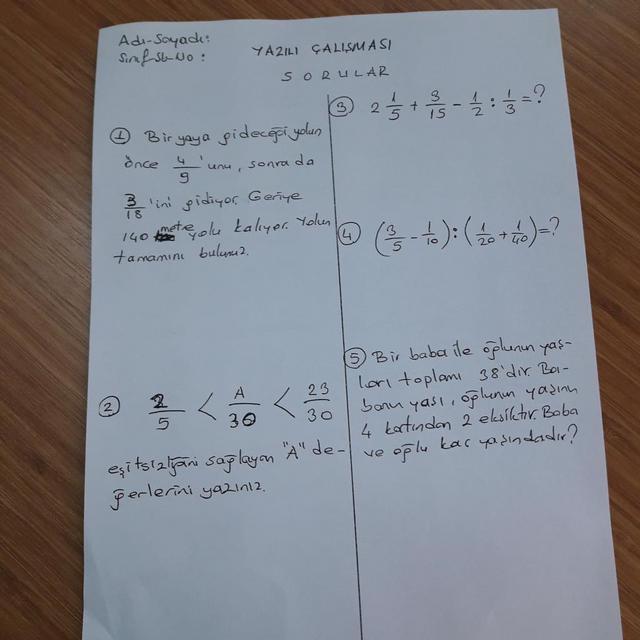 Adı-Soyadı:
Sınıf-Sb-No:
YAZILI ÇALIŞMASI
SORULAR
① Bir yaya gideceği yolun
önce 4/9 'unu, sonra da
3/18 'ini gidiyor. Geriye
140 metre yolu kalıyor. Yolun
tamamını bulunuz.
② 2/5 < A/30 < 23/30
eşitsizliğini sağlayan "A" de-
ğerlerini yazınız.
③ 2 1/5 + 3/15 - 1/2 : 1/3 = ?
④ (3/5 - 1/10) : (1/20 + 1/40) = ?
⑤ Bir baba ile oğlunun yaş-
ları toplamı 38'dir. Ba-
banın yaşı, oğlunun yaşının
4 katından 2 eksiktir. Baba
ve oğlu kaç yaşındadır?